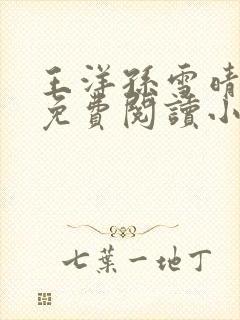 王洋孫雪晴
免費閱讀小
七葉一地丁